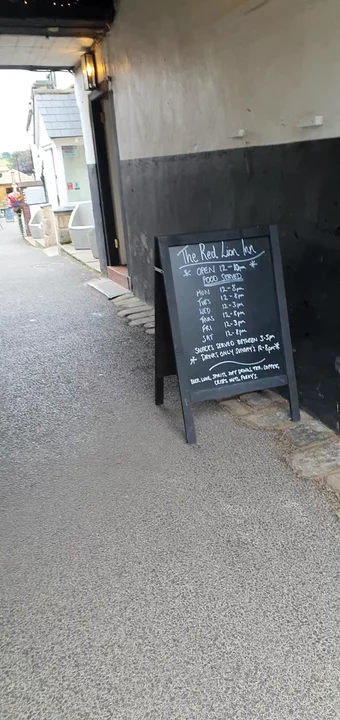 The Red Lion Inn
OPEN 12-10pm
FOOD SERVED
MON 12-8pm
TUES 12-8pm
WED 12-3pm
THURS 12-8pm
FRI 12-3pm
SAT 12-8pm
SNACKS SERVED BETWEEN 3-5pm
* DRINKS ONLY SUNDAY'S 12-8pm *
BEER, WINE, SPIRITS, SOFT DRINKS, TEA, COFFEE,
CRISPS, NUTS,